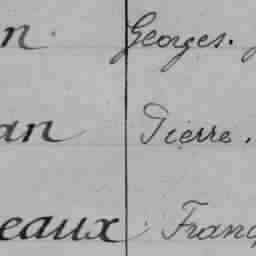 n. Georges.
an Pierre.
eaux. Franç